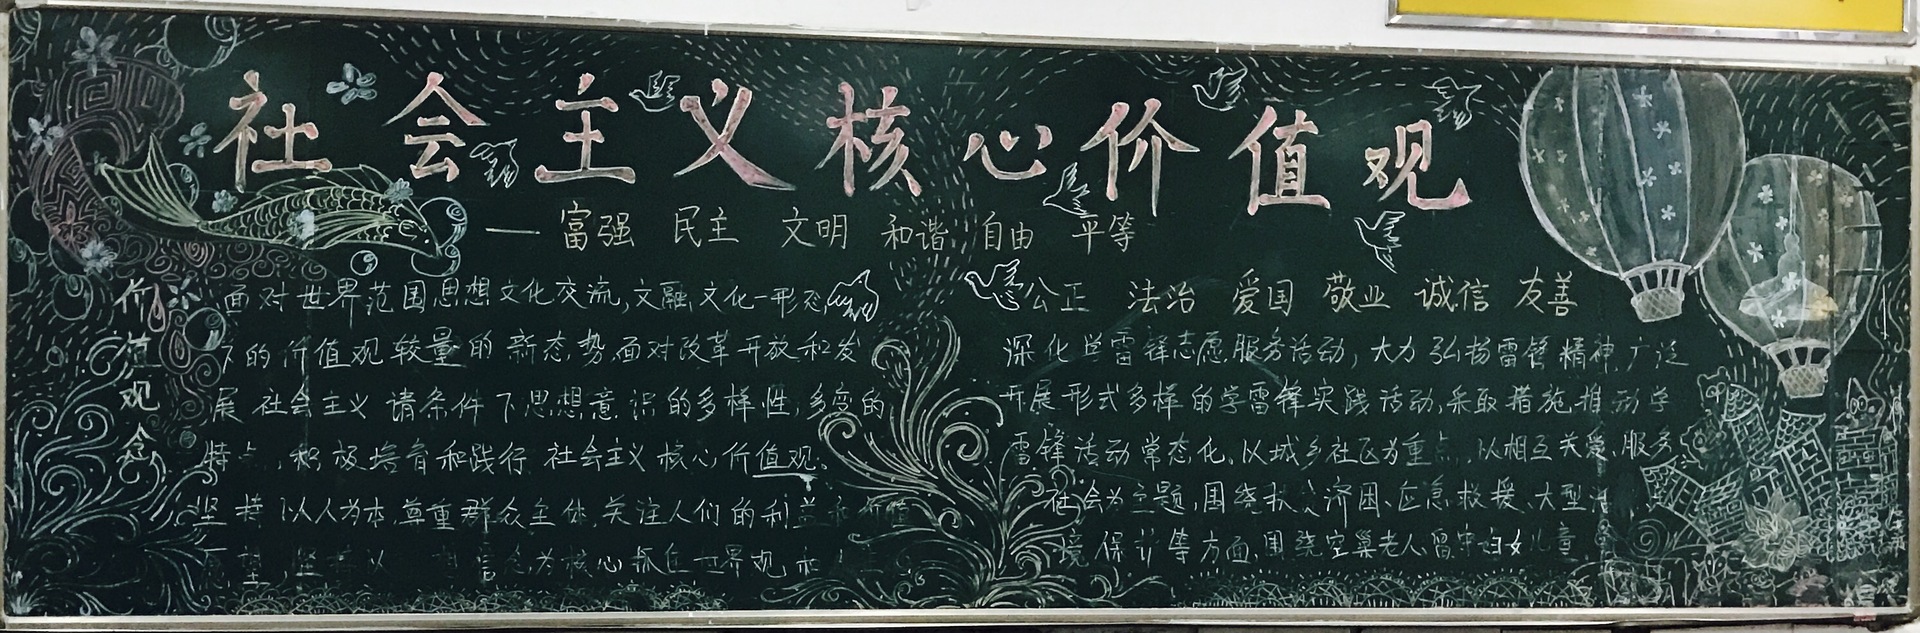 社会主义核心价值观
——富强 民主 文明 和谐 自由 平等
公正 法治 爱国 敬业 诚信 友善
价值观念
面对世界范围思想文化交流,文融文化一形态
下的价值观较量的新态势,面对改革开放和发
展社会主义请条件下思想意识的多样性,多变的
特点,积极培育和践行社会主义核心价值观、
坚持以人为本,尊重群众主体,关注人们的利益和价值
为核心抓住世界观
深化学雷锋志愿服务活动,大力弘扬雷锋精神,广泛
开展形式多样的学雷锋实践活动,采取措施推动学
雷锋活动常态化,以城乡社区为重点,以相互关爱、服务
社会为主题,围绕扶贫济困、应急救援、大型活
境保护等方面,围绕空巢老人,留守妇女儿童